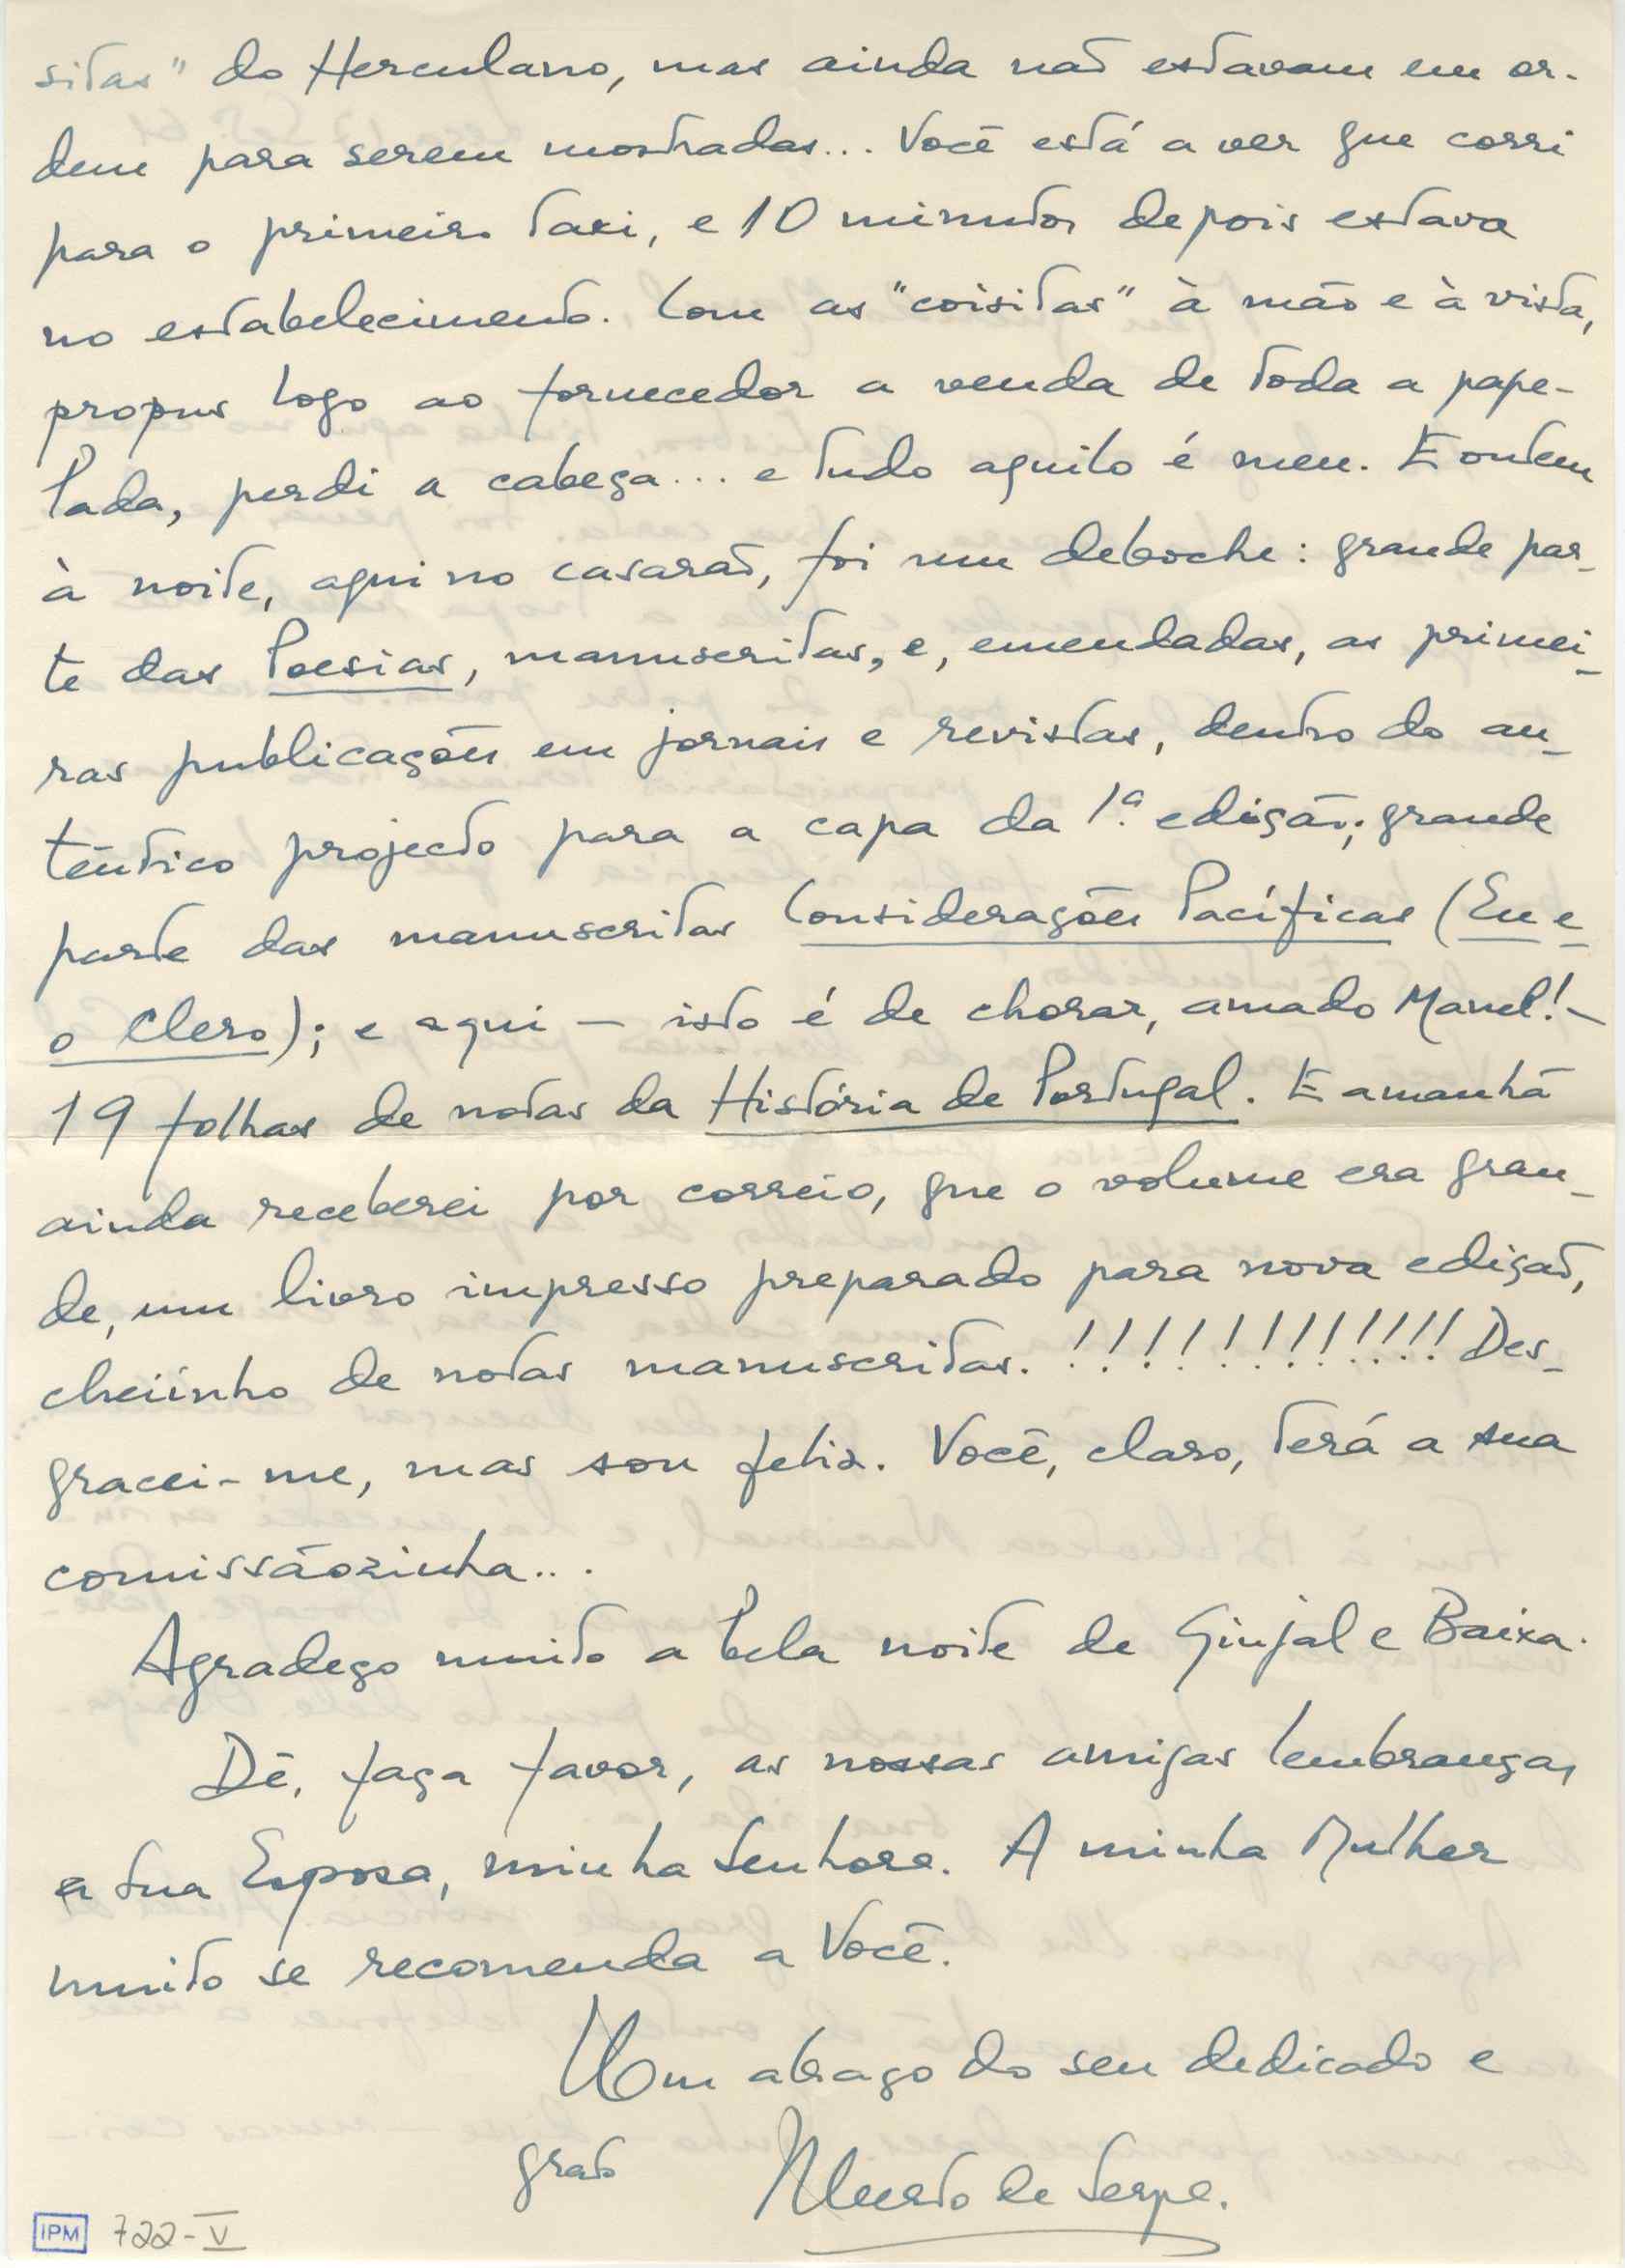 sitas" do Herculano, mas ainda não estavam em or-
dem para serem mostradas... Você está a ver que corri
para o primeiro taxi, e 10 minutos depois estava
no estabelecimento. Com as "coisitas" à mão e à vista,
propus logo ao fornecedor a venda de toda a pape-
lada, perdi a cabeça... e tudo aquilo é meu. E ontem
à noite, aqui no casarão, foi um deboche: grande par-
te das Poesias, manuscritas, e, emendadas, as primei-
ras publicações em jornais e revistas, dentro do au-
têntico projecto para a capa da 1.ª edição; grande
parte das manuscritas Considerações Pacíficas (Eu e
o Clero); e aqui — isto é de chorar, amado Manel! —
19 folhas de notas da História de Portugal. E amanhã
ainda receberei por correio, que o volume era gran-
de, um livro impresso preparado para nova edição,
cheiínho de notas manuscritas. !!!!!!!!!!!!! Des-
gracei-me, mas sou feliz. Você, claro, terá a sua
comissãozinha...
Agradeço muito a bela noite de Ginjal e Baixa.
Dê, faça favor, as nossas amigas lembranças
a sua Esposa, minha Senhora. A minha Mulher
muito se recomenda a Você.
Um abraço do seu dedicado e
grato Alberto de Serpa.
IPM 722-V